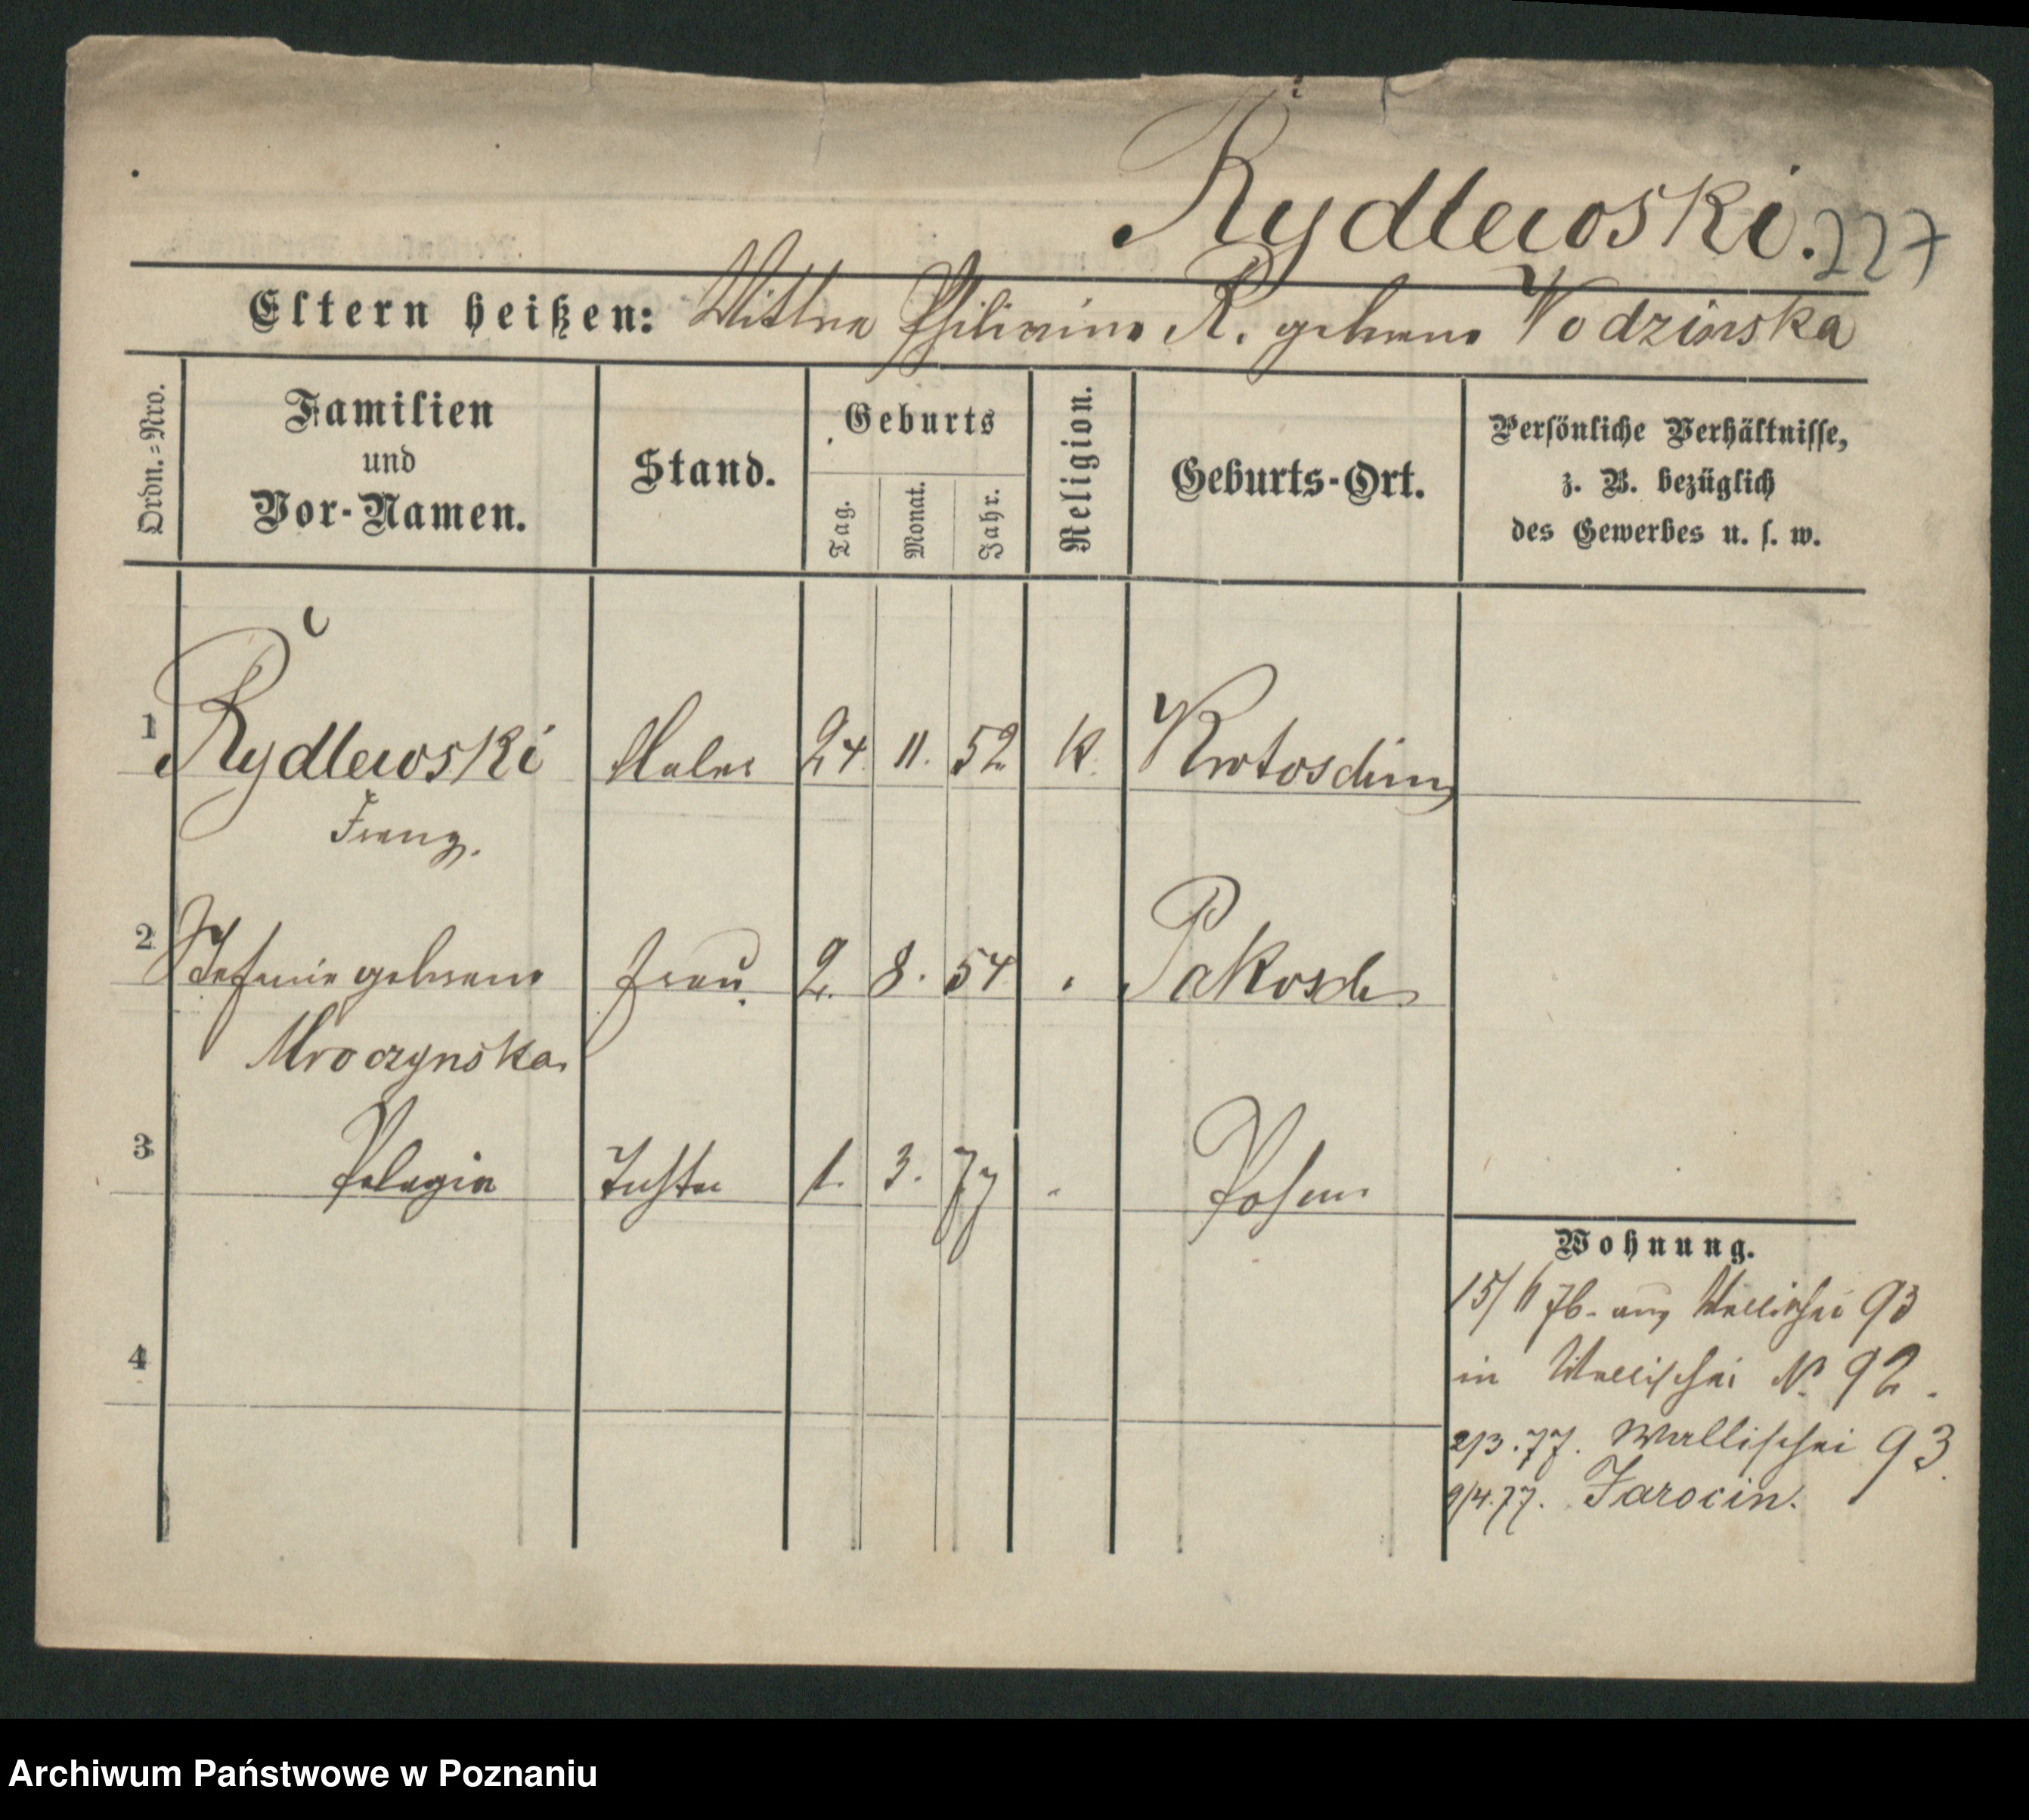 Rydlewski. 227
Eltern heißen: Wittwe Philippine R. geborene Wodzinska
Ordn.=Nro.
Familien
und
Vor-Namen.
Stand.
Geburts
Tag.
Monat.
Jahr.
Religion.
Geburts-Ort.
Persönliche Verhältnisse,
z. B. bezüglich
des Gewerbes u. s. w.
1 Rydlewski Maler 24. 11. 52 K. Krotoschin
Franz.
2 Stefanie geborene Frau 2. 8. 54 Pakosch
Mroczynska
3 Pelagia Tochter 1. 3. 77 Posen
4
Wohnung.
15/11 76. aus Wallischei 93
in Wallischei No. 92.
2/3.77. Wallischei 93.
9/4.77. Jarocin.
Archiwum Państwowe w Poznaniu